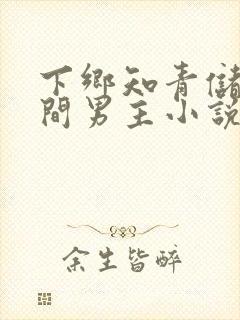 下鄉知青儲
間男主小說
余生皆醉